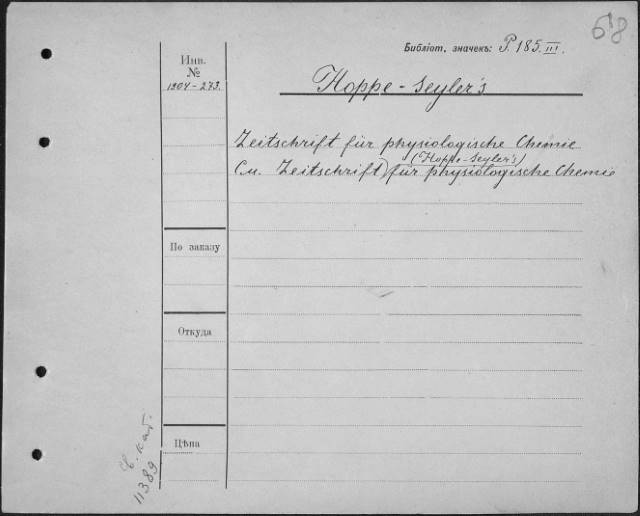 68
Библіот. значекъ: P. 185 III.
Инв.
№
1904-273.
Hoppe-Seyler's
Zeitschrift für physiologische Chemie
(Hoppe-Seyler's)
См. Zeitschrift) für physiologische Chemie
По заказу
Откуда
Цѣна
11389